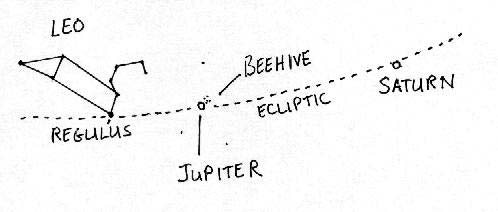 LEO
BEEHIVE
SATURN
ECLIPTIC
REGULUS
JUPITER